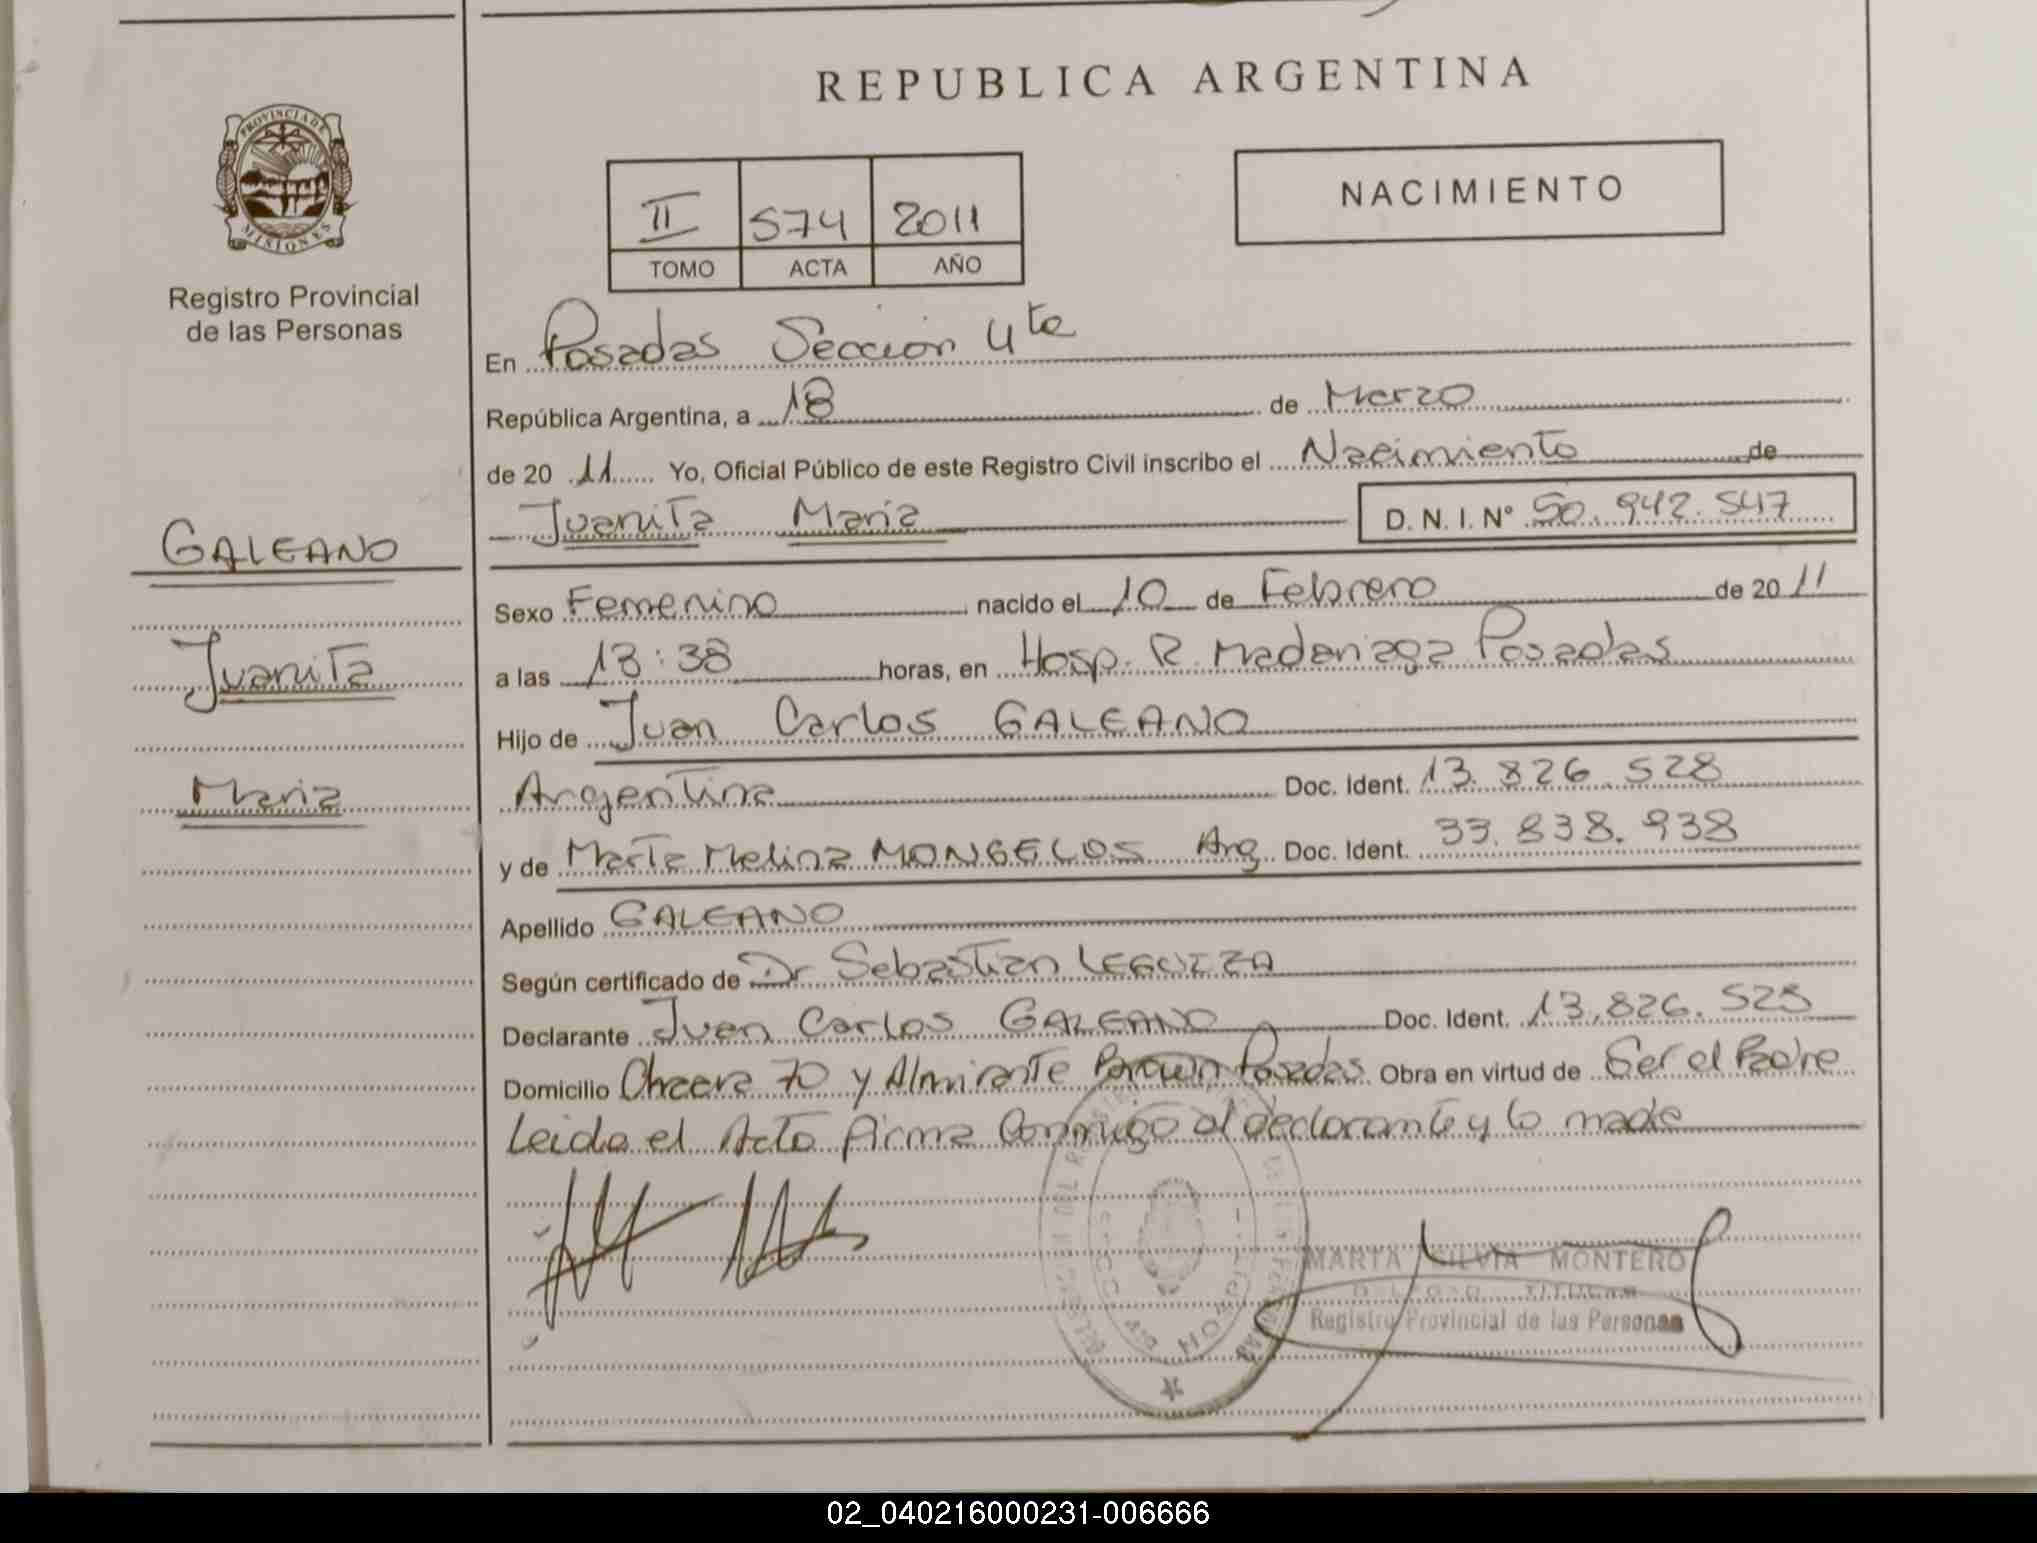 REPUBLICA ARGENTINA
PROVINCIA DE
MISIONES
Registro Provincial
de las Personas
II 574 2011
TOMO ACTA AÑO
NACIMIENTO
En Posadas Seccion 4ta
República Argentina, a 18 de Marzo
de 20 11 Yo, Oficial Público de este Registro Civil inscribo el Nacimiento de
Juanita Maria D. N. I. Nº 50.942.547
GALEANO
Juanita
Maria
Sexo Femenino nacido el 10 de Febrero de 20 11
a las 13:38 horas, en Hosp. R. Madariaga Posadas
Hijo de Juan Carlos GALEANO
Argentina Doc. Ident. 13.826.528
y de Marta Melina MONGELOS Arg. Doc. Ident. 33.838.938
Apellido GALEANO
Según certificado de Dr Sebastian LEGUIZA
Declarante Juan Carlos GALEANO Doc. Ident. 13.826.528
Domicilio Chacra 70 y Almirante Brown Posadas Obra en virtud de Ser el Padre
Leida el Acta firma Conmigo el declarante y la madre
MARTA SILVIA MONTERO
TITULAR
Registro Provincial de las Personas
02_040216000231-006666